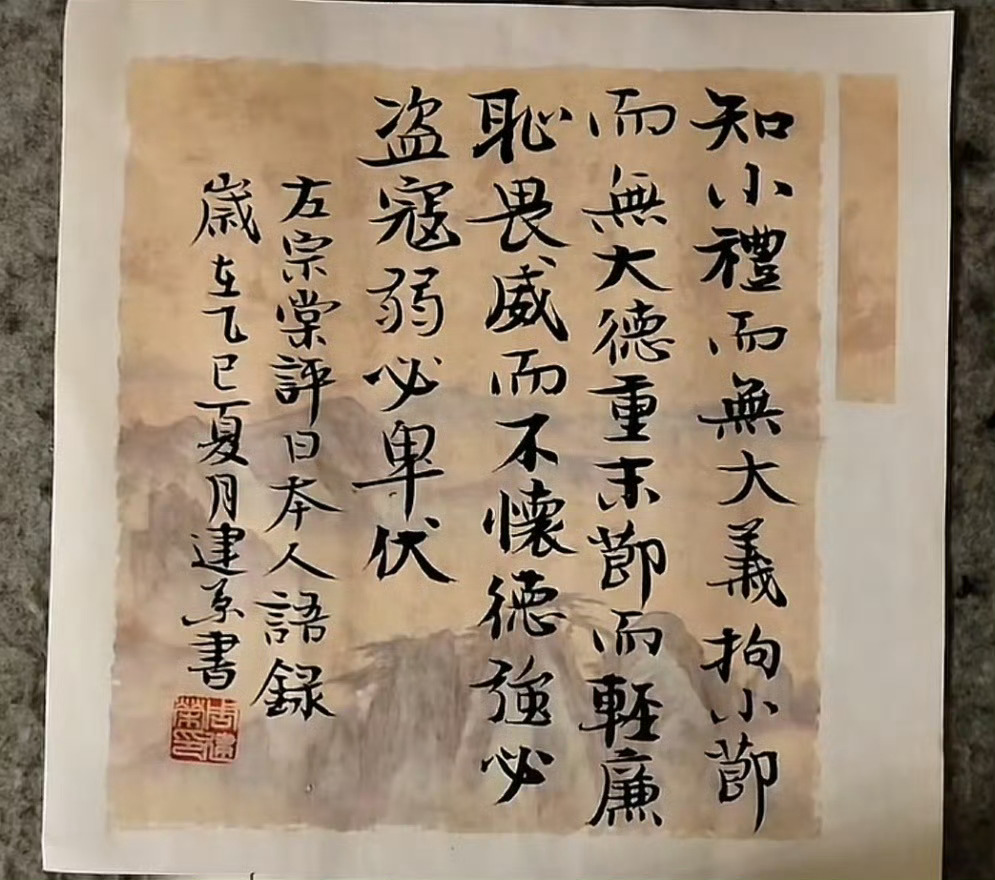 知小禮而無大義拘小節
而無大德重末節而輕廉
恥畏威而不懷德強必
盜寇弱必卑伏
左宗棠評日本人語錄
歲在乙巳夏月建榮書